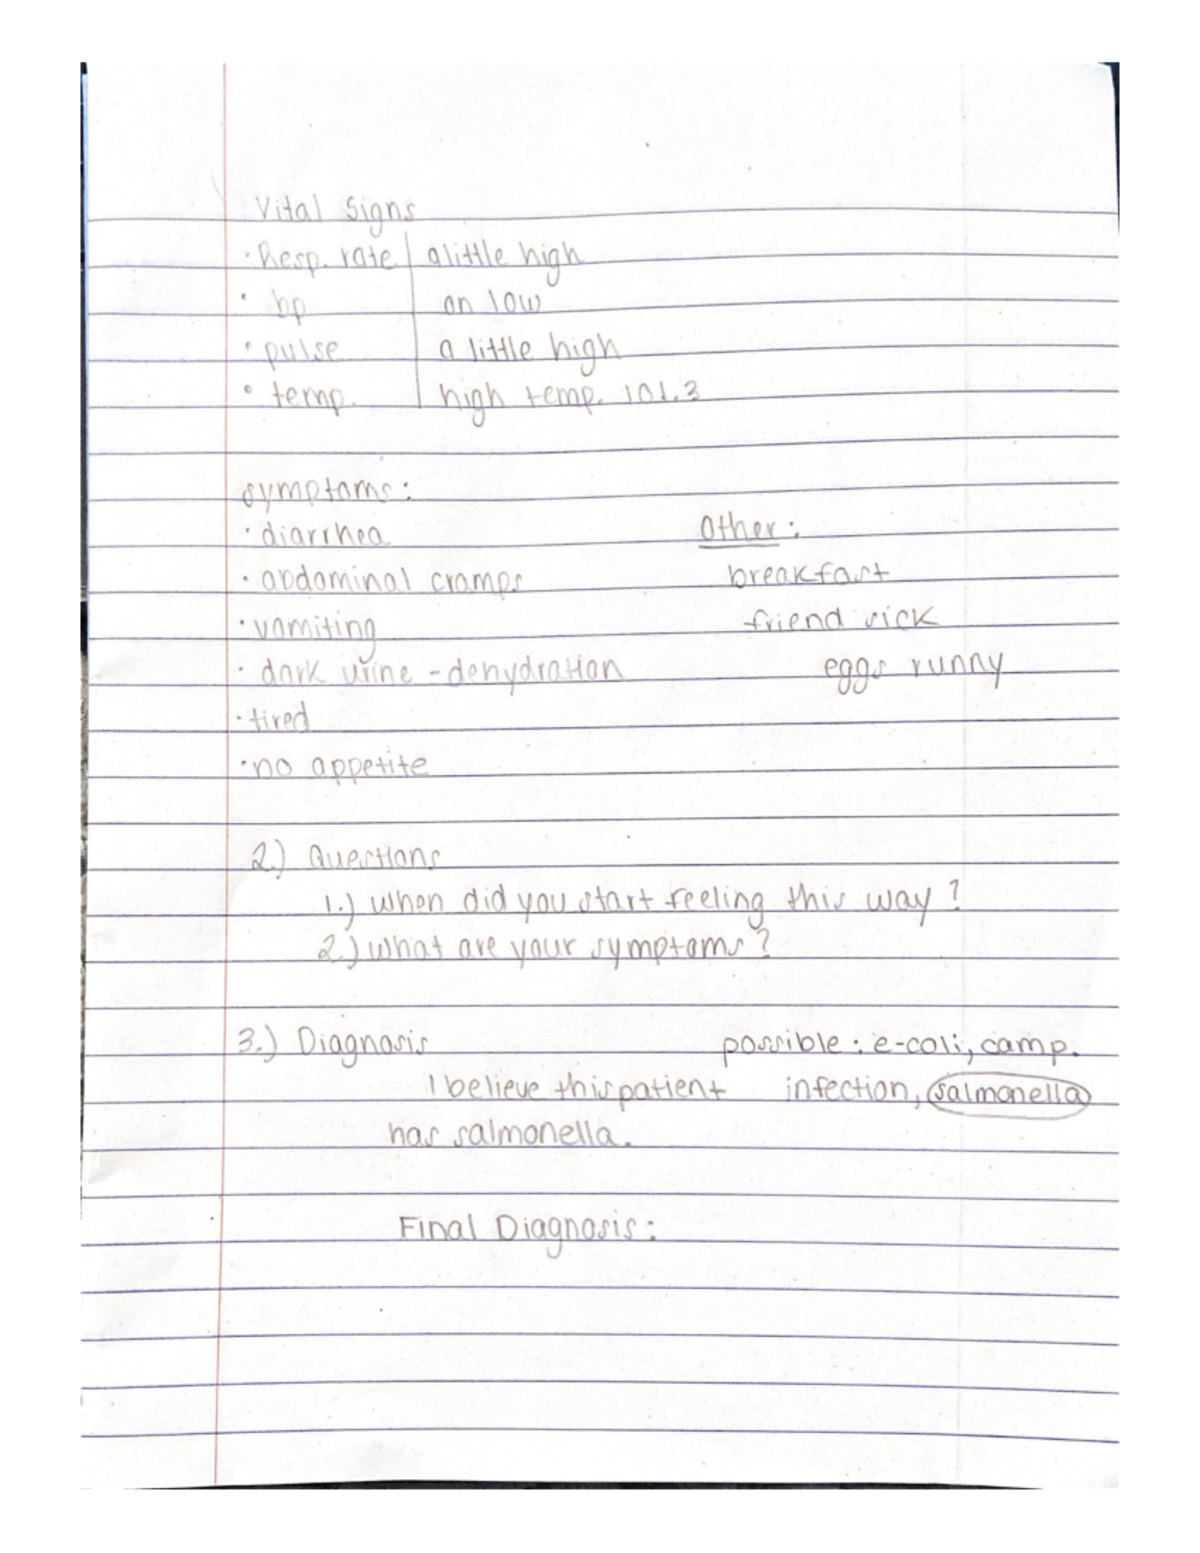 Vital Signs
· Resp. rate | a little high
· bp | on low
· pulse | a little high
· temp. | high temp. 101.3
symptoms:
· diarrhea
Other:
· abdominal cramps
breakfast
· vomiting
friend sick
· dark urine - dehydration
eggs runny
· tired
· no appetite
2.) Questions
1.) when did you start feeling this way?
2.) what are your symptoms?
3.) Diagnosis
possible: e-coli, camp.
I believe this patient
infection, salmonella
has salmonella.
Final Diagnosis: